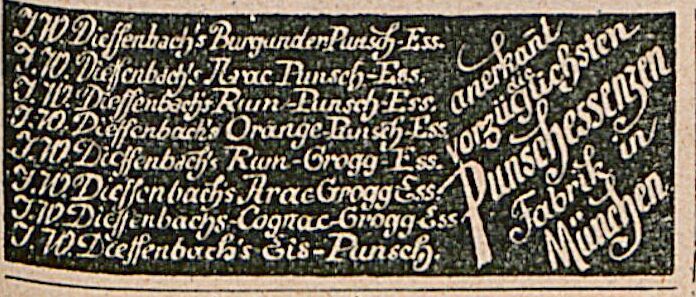 J.W. Dieffenbach's Burgunder Punsch-Ess.
J.W. Dieffenbach's Arac Punsch-Ess.
J.W. Dieffenbach's Rum-Punsch-Ess.
J.W. Dieffenbach's Orange-Punsch-Ess
J.W. Dieffenbach's Rum-Grogg-Ess.
J.W. Dieffenbach's Arac Grogg Ess.
J.W. Dieffenbachs-Cognac-Grogg Ess
J.W. Dieffenbach's Eis-Punsch.
anerkañt
die
vorzüglichsten
Punschessenzen
Fabrik in
München